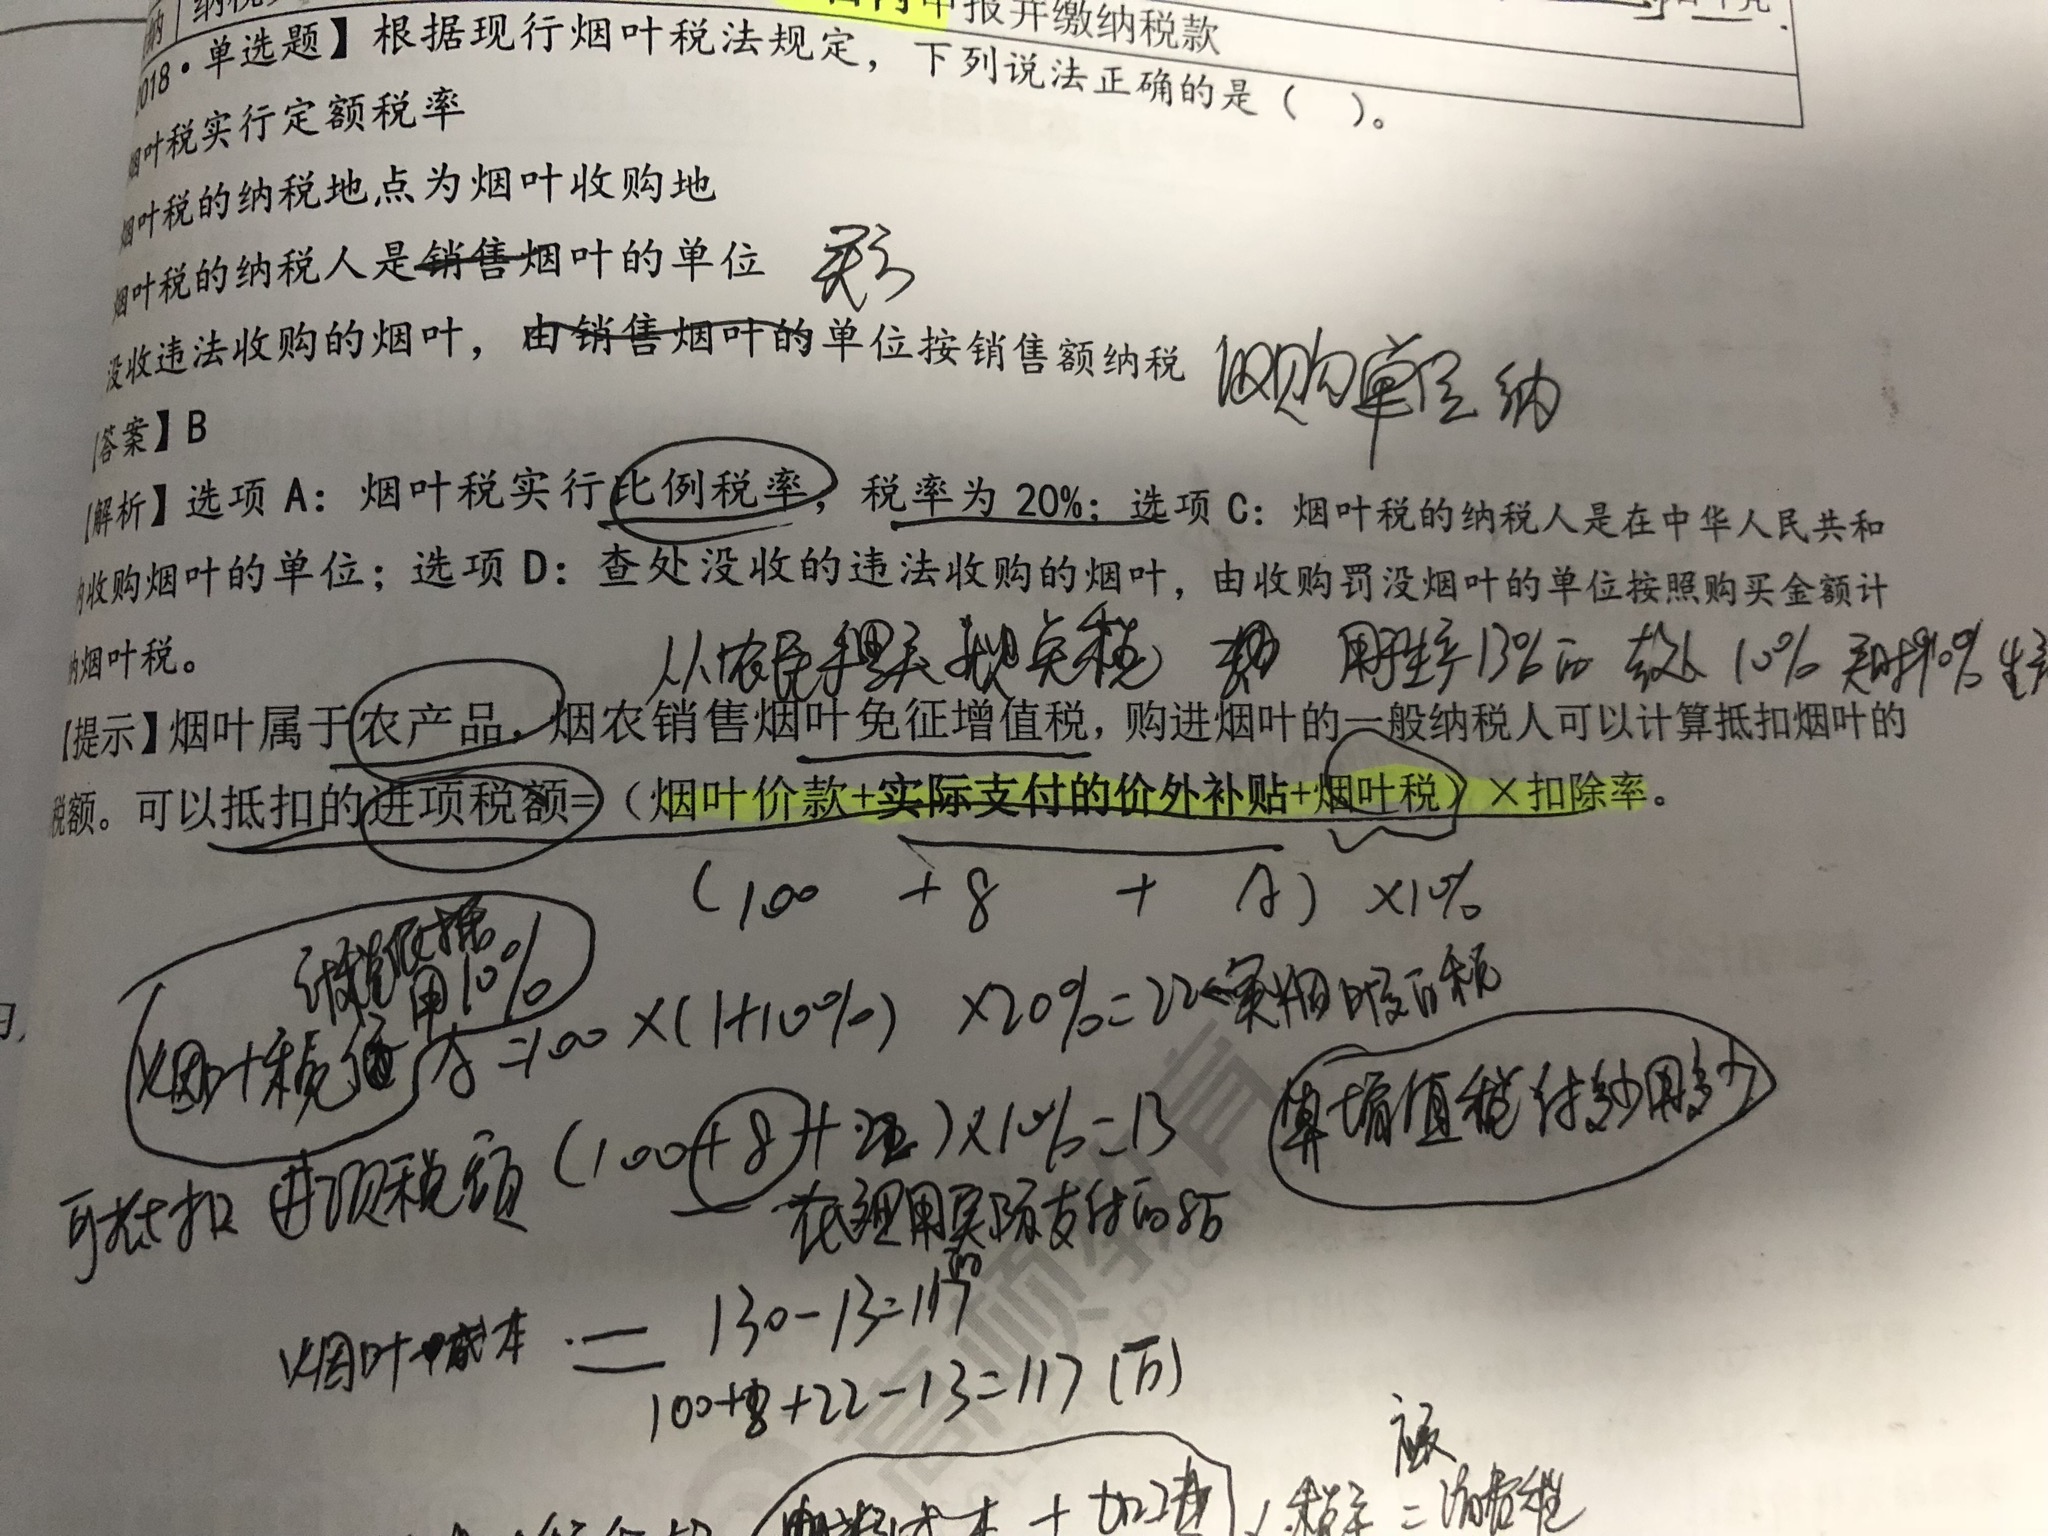 申报并缴纳税款
018·单选题】根据现行烟叶税法规定，下列说法正确的是（ ）。
烟叶税实行定额税率
烟叶税的纳税地点为烟叶收购地
烟叶税的纳税人是销售烟叶的单位 买
没收违法收购的烟叶，由销售烟叶的单位按销售额纳税 收购单位纳
【答案】B
【解析】选项 A：烟叶税实行比例税率，税率为 20%；选项 C：烟叶税的纳税人是在中华人民共和
内收购烟叶的单位；选项 D：查处没收的违法收购的烟叶，由收购罚没烟叶的单位按照购买金额计
纳烟叶税。
从农民手里买 用于生产13%的 10%
【提示】烟叶属于农产品，烟农销售烟叶免征增值税，购进烟叶的一般纳税人可以计算抵扣烟叶的
税额。可以抵扣的进项税额=（烟叶价款+实际支付的价外补贴+烟叶税）×扣除率。
(100 +8 + ) ×10%
用10%
烟叶税 =100×(1+10%) ×20%=22←买烟叶交的税
算增值税付多少用多少
可抵扣进项税额 (100+8+22)×10%=13
在这里用实际支付的8万
烟叶成本 = 130-13=117
100+8+22-13=117(万)
成本+加工费 税率=消费税